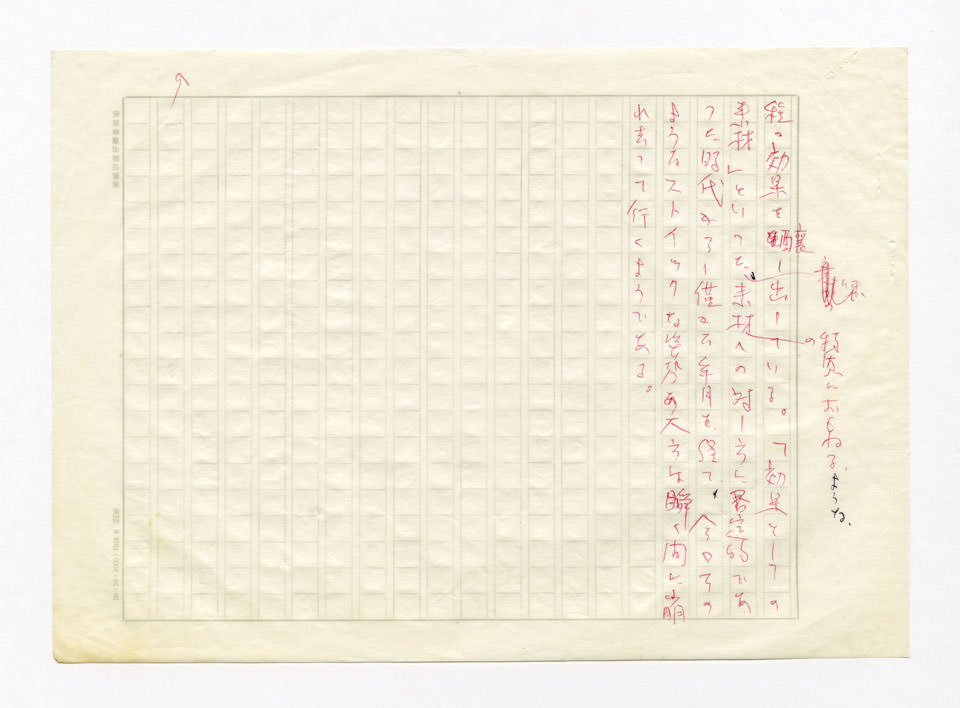 程の効果を醸し出している。「効果としての
素材」といった、素材への対し方に否定的であ
の特質におもねる、ような、
った時代から、僅かな年月を経て、今やその
ようなストイックな姿勢の大方は瞬く間に崩
れ去って行くようである。